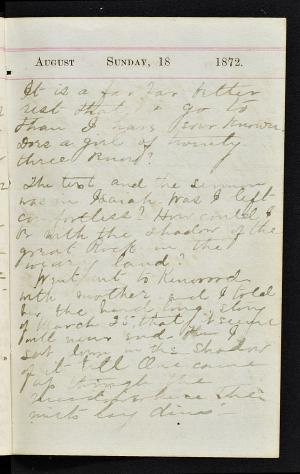 August Sunday, 18 1872.
It is a far far better
rest that I go to
than I have ever known.
Does a girl of twenty
three know?
The text and the sermon
was in Isaiah. Was I left
comfortless? How could I
be with the shadow of the
great Rock in the
weary land?
Went out to Kenwood
with mother and I told
her the long story
of March 25, that
will never end. Then I
sat down in the shadow
of it till One came
up through the
where the
mists lay